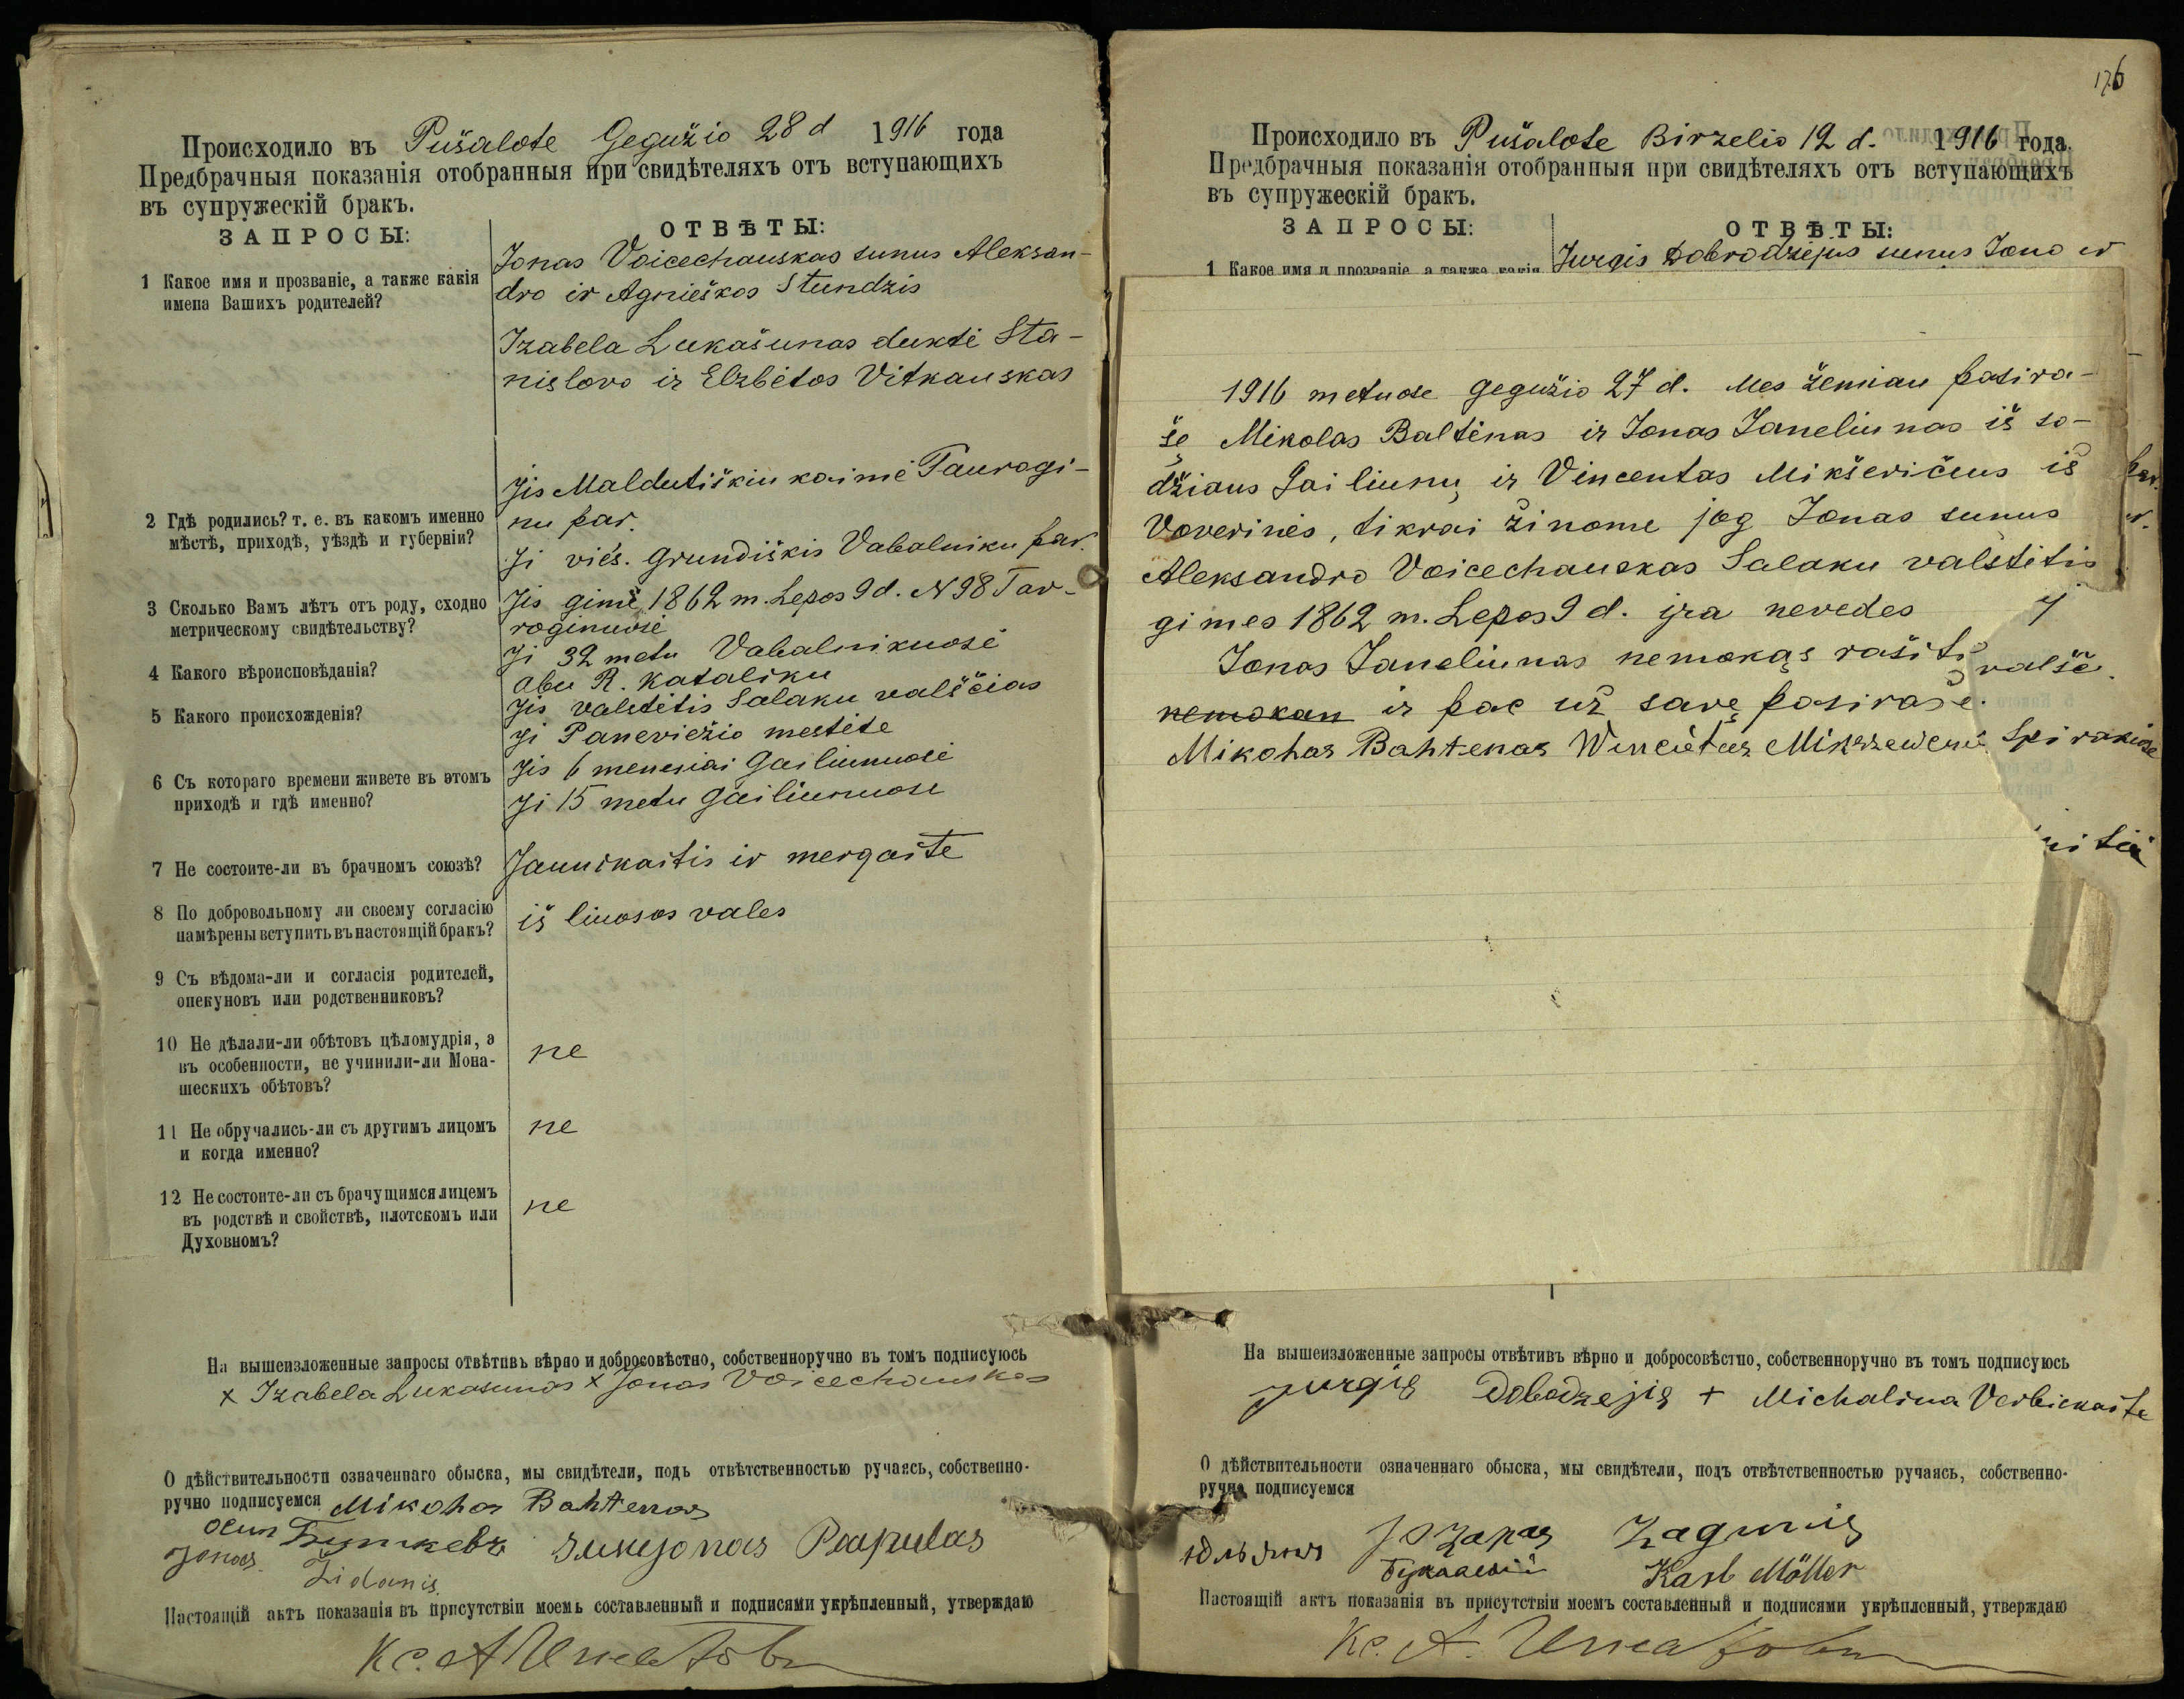 Происходило въ Pušalote Gegužio 28 d 1916 года
Предбрачныя показанія отобранныя при свидѣтеляхъ отъ вступающихъ
въ супружескій бракъ.
ЗАПРОСЫ:
ОТВѢТЫ:
1 Какое имя и прозваніе, а также какія
имена Вашихъ родителей?
Jonas Voicechauskas sunus Aleksan-
dro ir Agnieškos Stundzis
Izabela Lukašunas duktė Sta-
nislovo ir Elzbėtos Vitkauskas
2 Гдѣ родились? т. е. въ какомъ именно
мѣстѣ, приходѣ, уѣздѣ и губерніи?
Jis Maldutiškiu kaimė Tauragi-
nu par.
Ji vies. Grundiškis Vabalniku par.
3 Сколько Вамъ лѣтъ отъ роду, сходно
метрическому свидѣтельству?
Jis gimė 1862 m. Lepos 9 d. N 98 Tav-
roginuosė
Ji 32 metu Vabalnikuosė
4 Какого вѣроисповѣданія?
abu R. kataliku
5 Какого происхожденія?
Jis valstėtis Salaku valščias
Ji Paneviežio mestėte
6 Съ котораго времени живете въ этомъ
приходѣ и гдѣ именно?
Jis 6 menesiai Gailiunuosė
Ji 15 metu Gailiunuose
7 Не состоите-ли въ брачномъ союзѣ?
Jaunikaitis ir mergaite
8 По добровольному ли своему согласію
намѣрены вступить въ настоящій бракъ?
iš liuosos vales
9 Съ вѣдома-ли и согласія родителей,
опекуновъ или родственниковъ?
10 Не дѣлали-ли обѣтовъ цѣломудрія, а
въ особенности, не учинили-ли Мона-
шескихъ обѣтовъ?
ne
11 Не обручались-ли съ другимъ лицомъ
и когда именно?
ne
12 Не состоите-ли съ брачущимся лицемъ
въ родствѣ и свойствѣ, плотскомъ или
Духовномъ?
ne
На вышеизложенные запросы отвѣтивъ вѣрно и добросовѣстно, собственноручно въ томъ подписуюсь
x Izabela Lukasunas x Jonas Voicechauskas
О дѣйствительности означеннаго обыска, мы свидѣтели, подъ отвѣтственностью ручаясь, собственно-
ручно подписуемся Mikohas Bahtenas
Jonas Zidonis
Papulas
Настоящій актъ показанія въ присутствіи моемъ составленный и подписями укрѣпленный, утверждаю
Кс. А
176
Происходило въ Pušalote Birzelio 12 d. 1916 года.
Предбрачныя показанія отобранныя при свидѣтеляхъ отъ вступающихъ
въ супружескій бракъ.
ЗАПРОСЫ:
ОТВѢТЫ:
1 Какое имя и прозваніе, а также какія
Jurgis Dobrodziejus sunus Jono ir
1916 metuose gegužio 27 d. Mes žemiau pasira-
šę Mikolas Baltėnas ir Jonas Janeliunas iš so-
džiaus Gailiunų ir Vincentas Mikševičius iš
Voverinės, tikrai žinome jog Jonas sunus
Aleksandro Voicechauskas Salaku valstėtis
gimes 1862 m. Lepos 9 d. ira nevedes
Jonas Janeliunas nemokąs rašiti
nemokan ir pac už savę pasirašė.
Mikohas Bahtenas
par.
valšč.
На вышеизложенные запросы отвѣтивъ вѣрно и добросовѣстно, собственноручно въ томъ подписуюсь
Jurgis Dobodzejis + Michalina Verbickaite
О дѣйствительности означеннаго обыска, мы свидѣтели, подъ отвѣтственностью ручаясь, собственно-
ручно подписуемся
Zagunis
Karl Möller
Настоящій актъ показанія въ присутствіи моемъ составленный и подписями укрѣпленный, утверждаю
Кс. А.